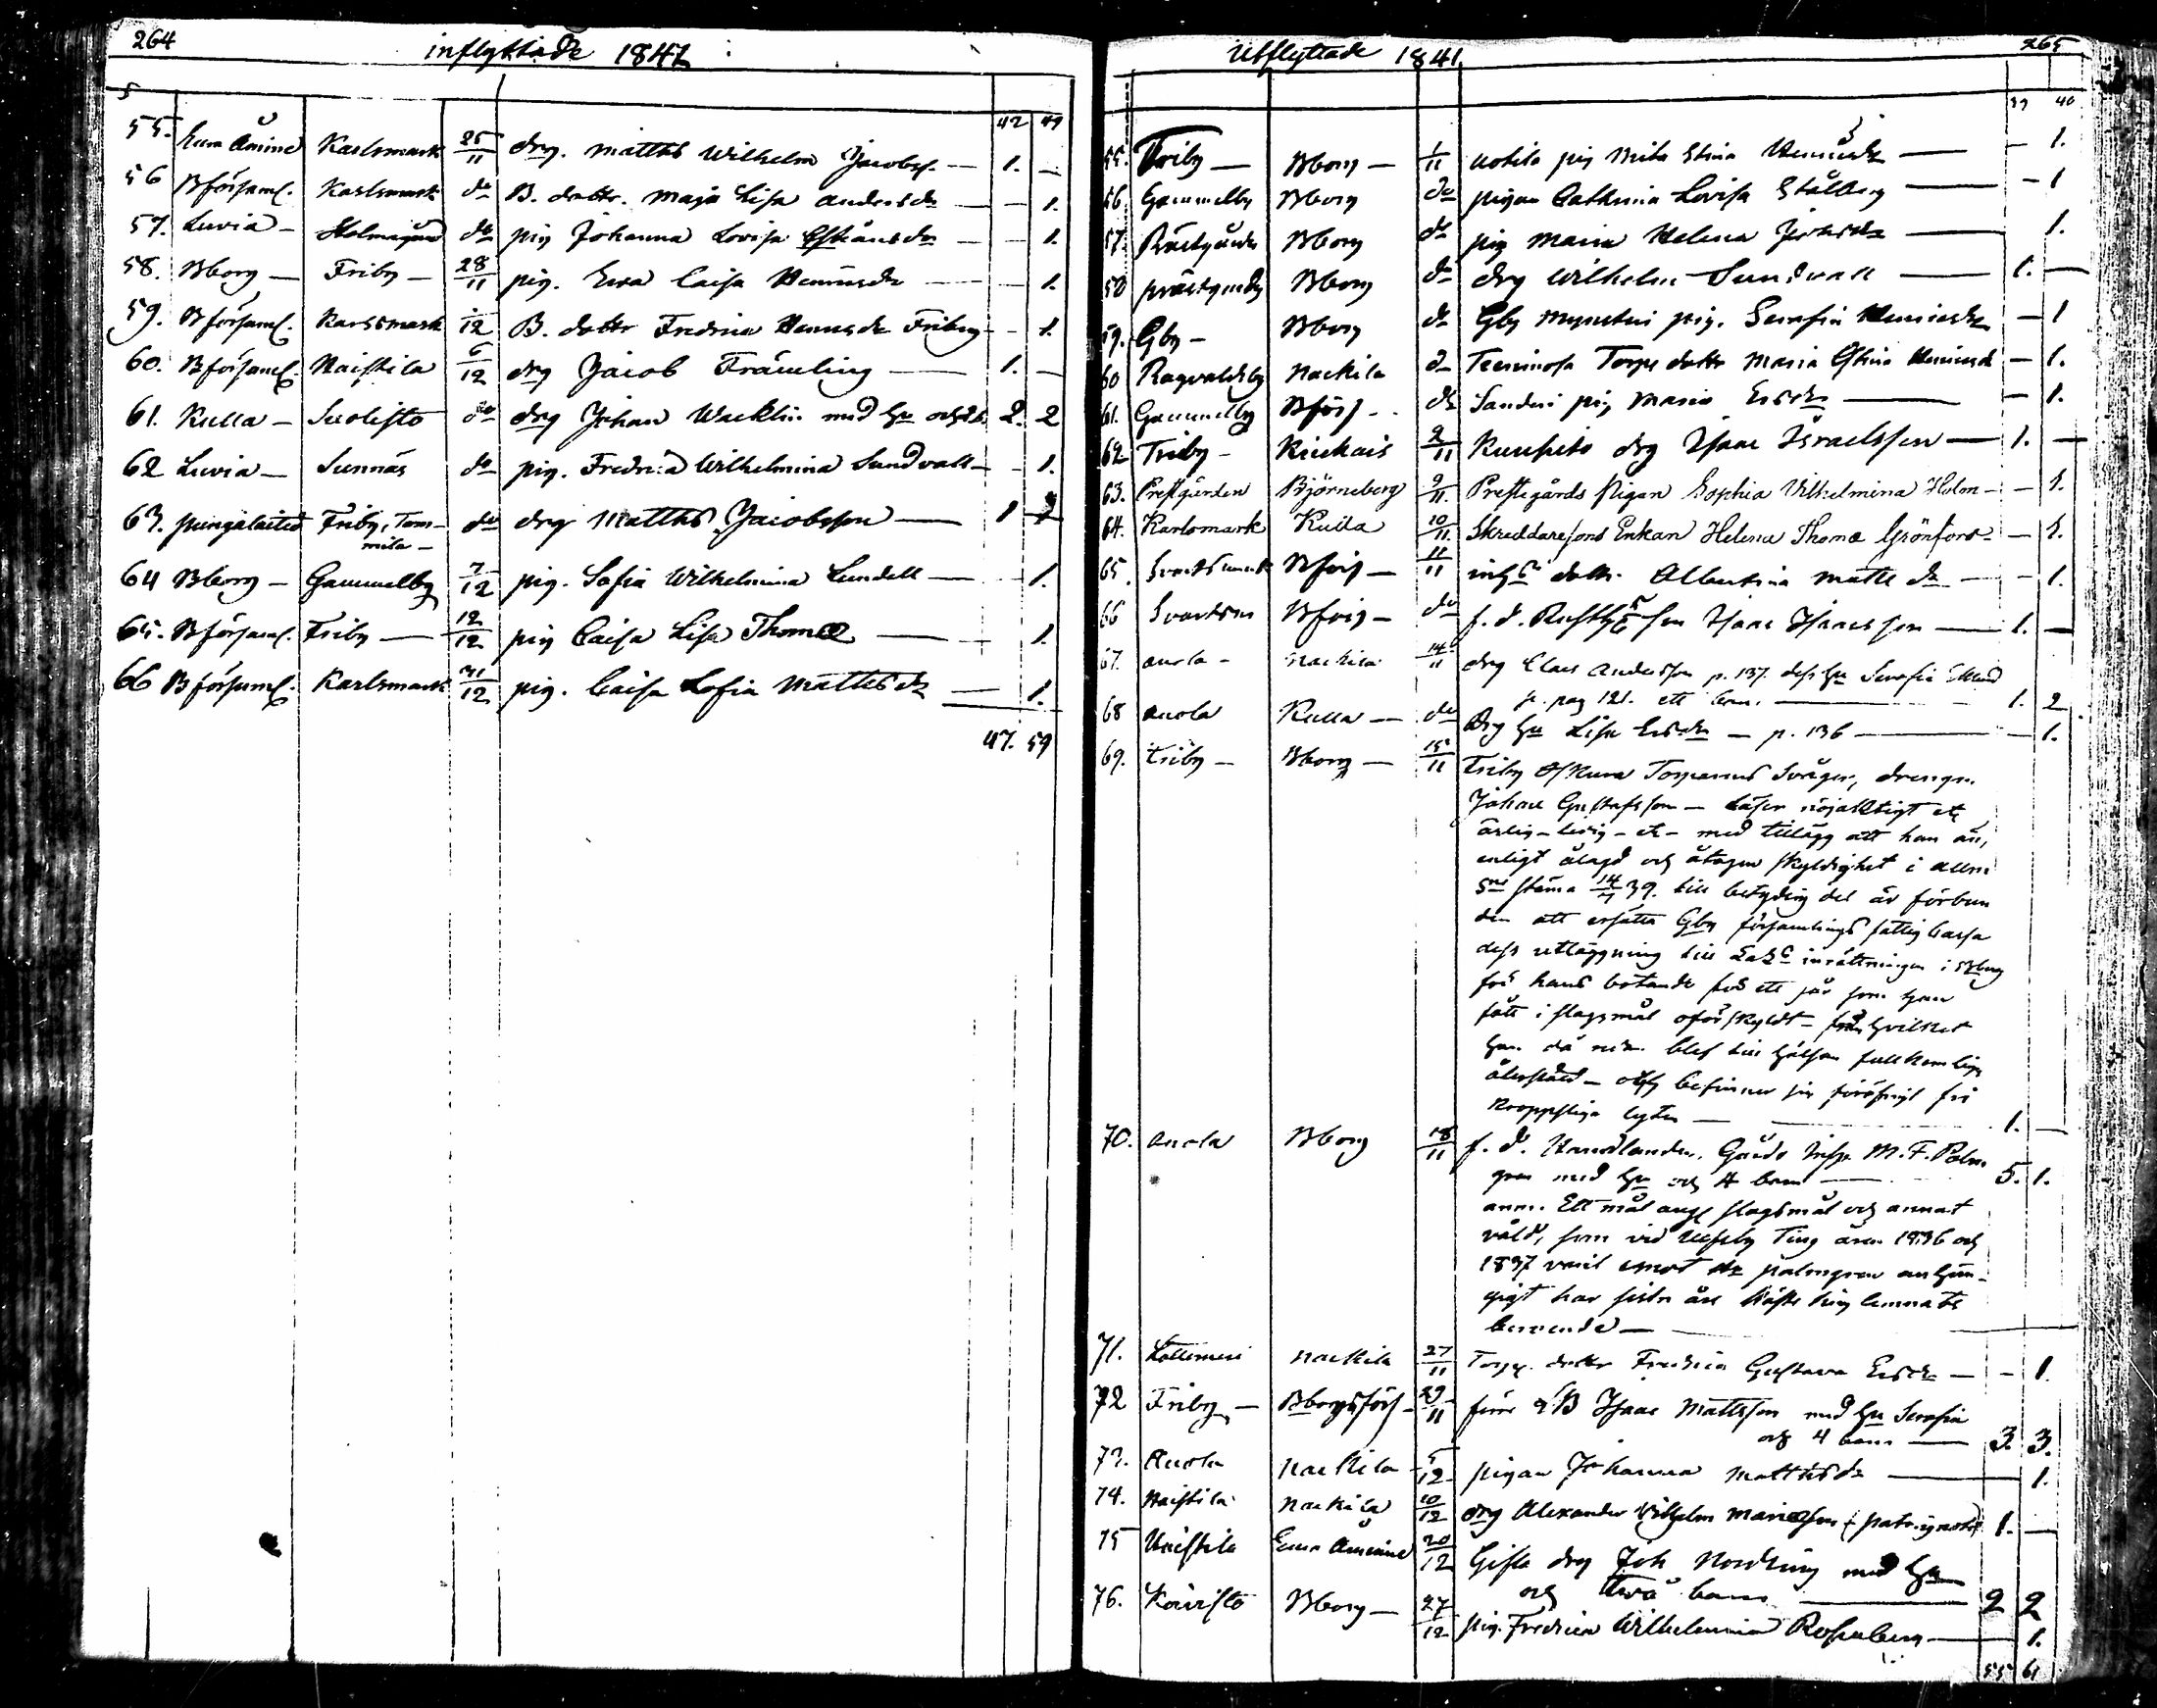 264
inflyttade 1841
5
42 49
55. Eura Åminne Karlsmark 25/11 drg. Matths Wilhelm Jacobss. — 1. —
56 Bförsaml. Karlsmark do B. dottr. Maja Lisa Andersdr — — 1.
57. Luvia — Holmgård do pig Johanna Lovisa — — 1.
58. Bborg — Friby — 28/11 pig. Ewa Caisa Henricsdr — — 1.
59. Bförsaml. Karlsmark 1/12 B. dottr Fredrica Henricsdr Friberg — 1.
60. Bförsaml. Naistila 6/12 drg Jacob Främling — 1. —
61. Kulla — Suolisto do drg Johan Wacklin med hu och 2 b. 2. 2
62 Luvia — Sunnäs do pig. Fredrica Wilhelmina Sundvall — — 1.
63. pungalaitio Friby, Tom- do drg Matths Jacobsson — 1
mila —
64 Bborg — Gammelby 7/12 pig. Sofia Wilhelmina Lundell — — 1.
65. Bförsaml. Friby — 12/12 pig Caisa Lisa Thomæ — 1.
66 Bförsaml. Karlsmark 31/12 pig. Caisa Sofia Mattsdr — 1.
47. 59
Utflyttade 1841.
265
39 40
55. Friby — Bborg — 1/11 pig Brita Stina Henricsdr — — 1.
56. Gammelby Bborg do pigan Cathrina Lovisa Stålberg — — 1
57. Prästgården Bborg do pig Maria Helena — 1.
58 prästgården Bborg do drg Wilhelm Sundvall — 1. —
59. Gby — Bborg do Gby pig. Serafia Henricsdr — 1
60 Ragvaldsby Nackila do Torp dottr Maria Stina — 1.
61. Gammelby Bförs — do Sanderi pig Maria Ersdr — — 1.
62 Friby — Kiukais 9/11 drg Isaac Israelsson — 1. —
63. Prestgården Björneborg 9/11. Prestegårds pigan Sophia Vilhelmina Holm — — 1.
64. Karlsmark Kulla 10/11. Skreddaresons Enkan Helena Thomæ Grönfors — — 1.
65. Svartsmark Bförs — 11/11 inhs dottr. Albertina Matts dr — — 1.
66 Svartsm Bförs — do f. d. Rusth. son Isaac Isaacsson — 1. —
67. Anola — Nackila 14/11 drg Claes Andersson p. 137. dess hu Serafia Eklund
p. pag 121. ett barn. — 1. 2
68 Anola Kulla — do Drg hu Lisa Ersdr — p. 136 — — 1.
69. Friby — Bborg — 15/11 Friby Torparens Svåger, drengen
Johan Gustafsson — läser nöjaktigt etc
ärlig — ledig — etc — med tillägg att han är,
enligt ålagd och åtagen skyldighet i allm
sne stäma 14/7 39. till betyding det är förbun
den att ersätta Gby församlings fattig cassa
dess utläggning till Laz. inrättningen i Bborg
för hans botande för ett sår som han
fått i slagsmål oförskyldt — från hvilket
han då blef till hälsan fullkomligen
återstäld — och befinner sig för öfrigt fri
kroppsliga lyten — 1. —
70. Anola Bborg 18/11 f. d. Handlanden, Gårds Insp. M. F. Palm
gren med hu och 4 barn — 5. 1.
anm. Ett mål ang. slagsmål och annat
våld, som vid Ulfsby Ting åren 1836 och
1837 varit emot Hr Palmgren anhän-
gigt har sistn år höste ting lemnats
beroende —
71. Lattomeri Nackila 27/11 Torp. dottr Fredrica Gustava Ersdr — — 1.
72 Friby — Bborgsförs — 29/11 förre Isaac Mattsson med hu Serafia
och 4 barn — 3. 3.
73. Anola Nackila 5/12 pigan Johanna Matthsdr — 1.
74. Naistila Nackila 10/12 drg Alexander Wilhelm Mariæson 1. —
75 Naistila Eura Åminne 20/12 Gifta drg Joh Nordling med hu
och två barn — 2 2
76. Koivisto Bborg — 27/12 pig. Fredrica Wilhelmina Rosenberg — 1.
55 61